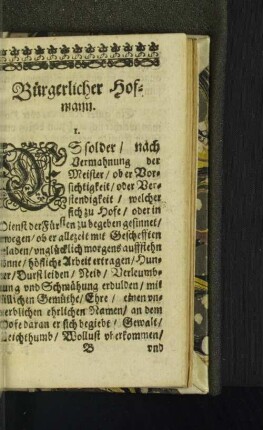 Bürgerlicher Hof-
mann.
1.
ES solder / nach
Vermahnung der
Meister / ob er Vor-
sichtigkeit / oder Ver-
stendigkeit / welcher
sich zu Hofe / oder in
Dienst der Fürsten zu begeben gesinnet /
wegen / ob er allezeit mit Geschefften
laden / unglücklich morgens auffstehn
könne / höfliche Arbeit ertragen / Hun-
ger / Durst leiden / Neid / Verleumb-
ung vnd Schmühung erdulden / mit
stillichen Gemüthe / Ehre / einen vn-
sterblichen ehrlichen Namen / an dem
Hofe daran er sich begiebt / Gewalt /
Reichthumb / Wollust vberkommen /
B vnd